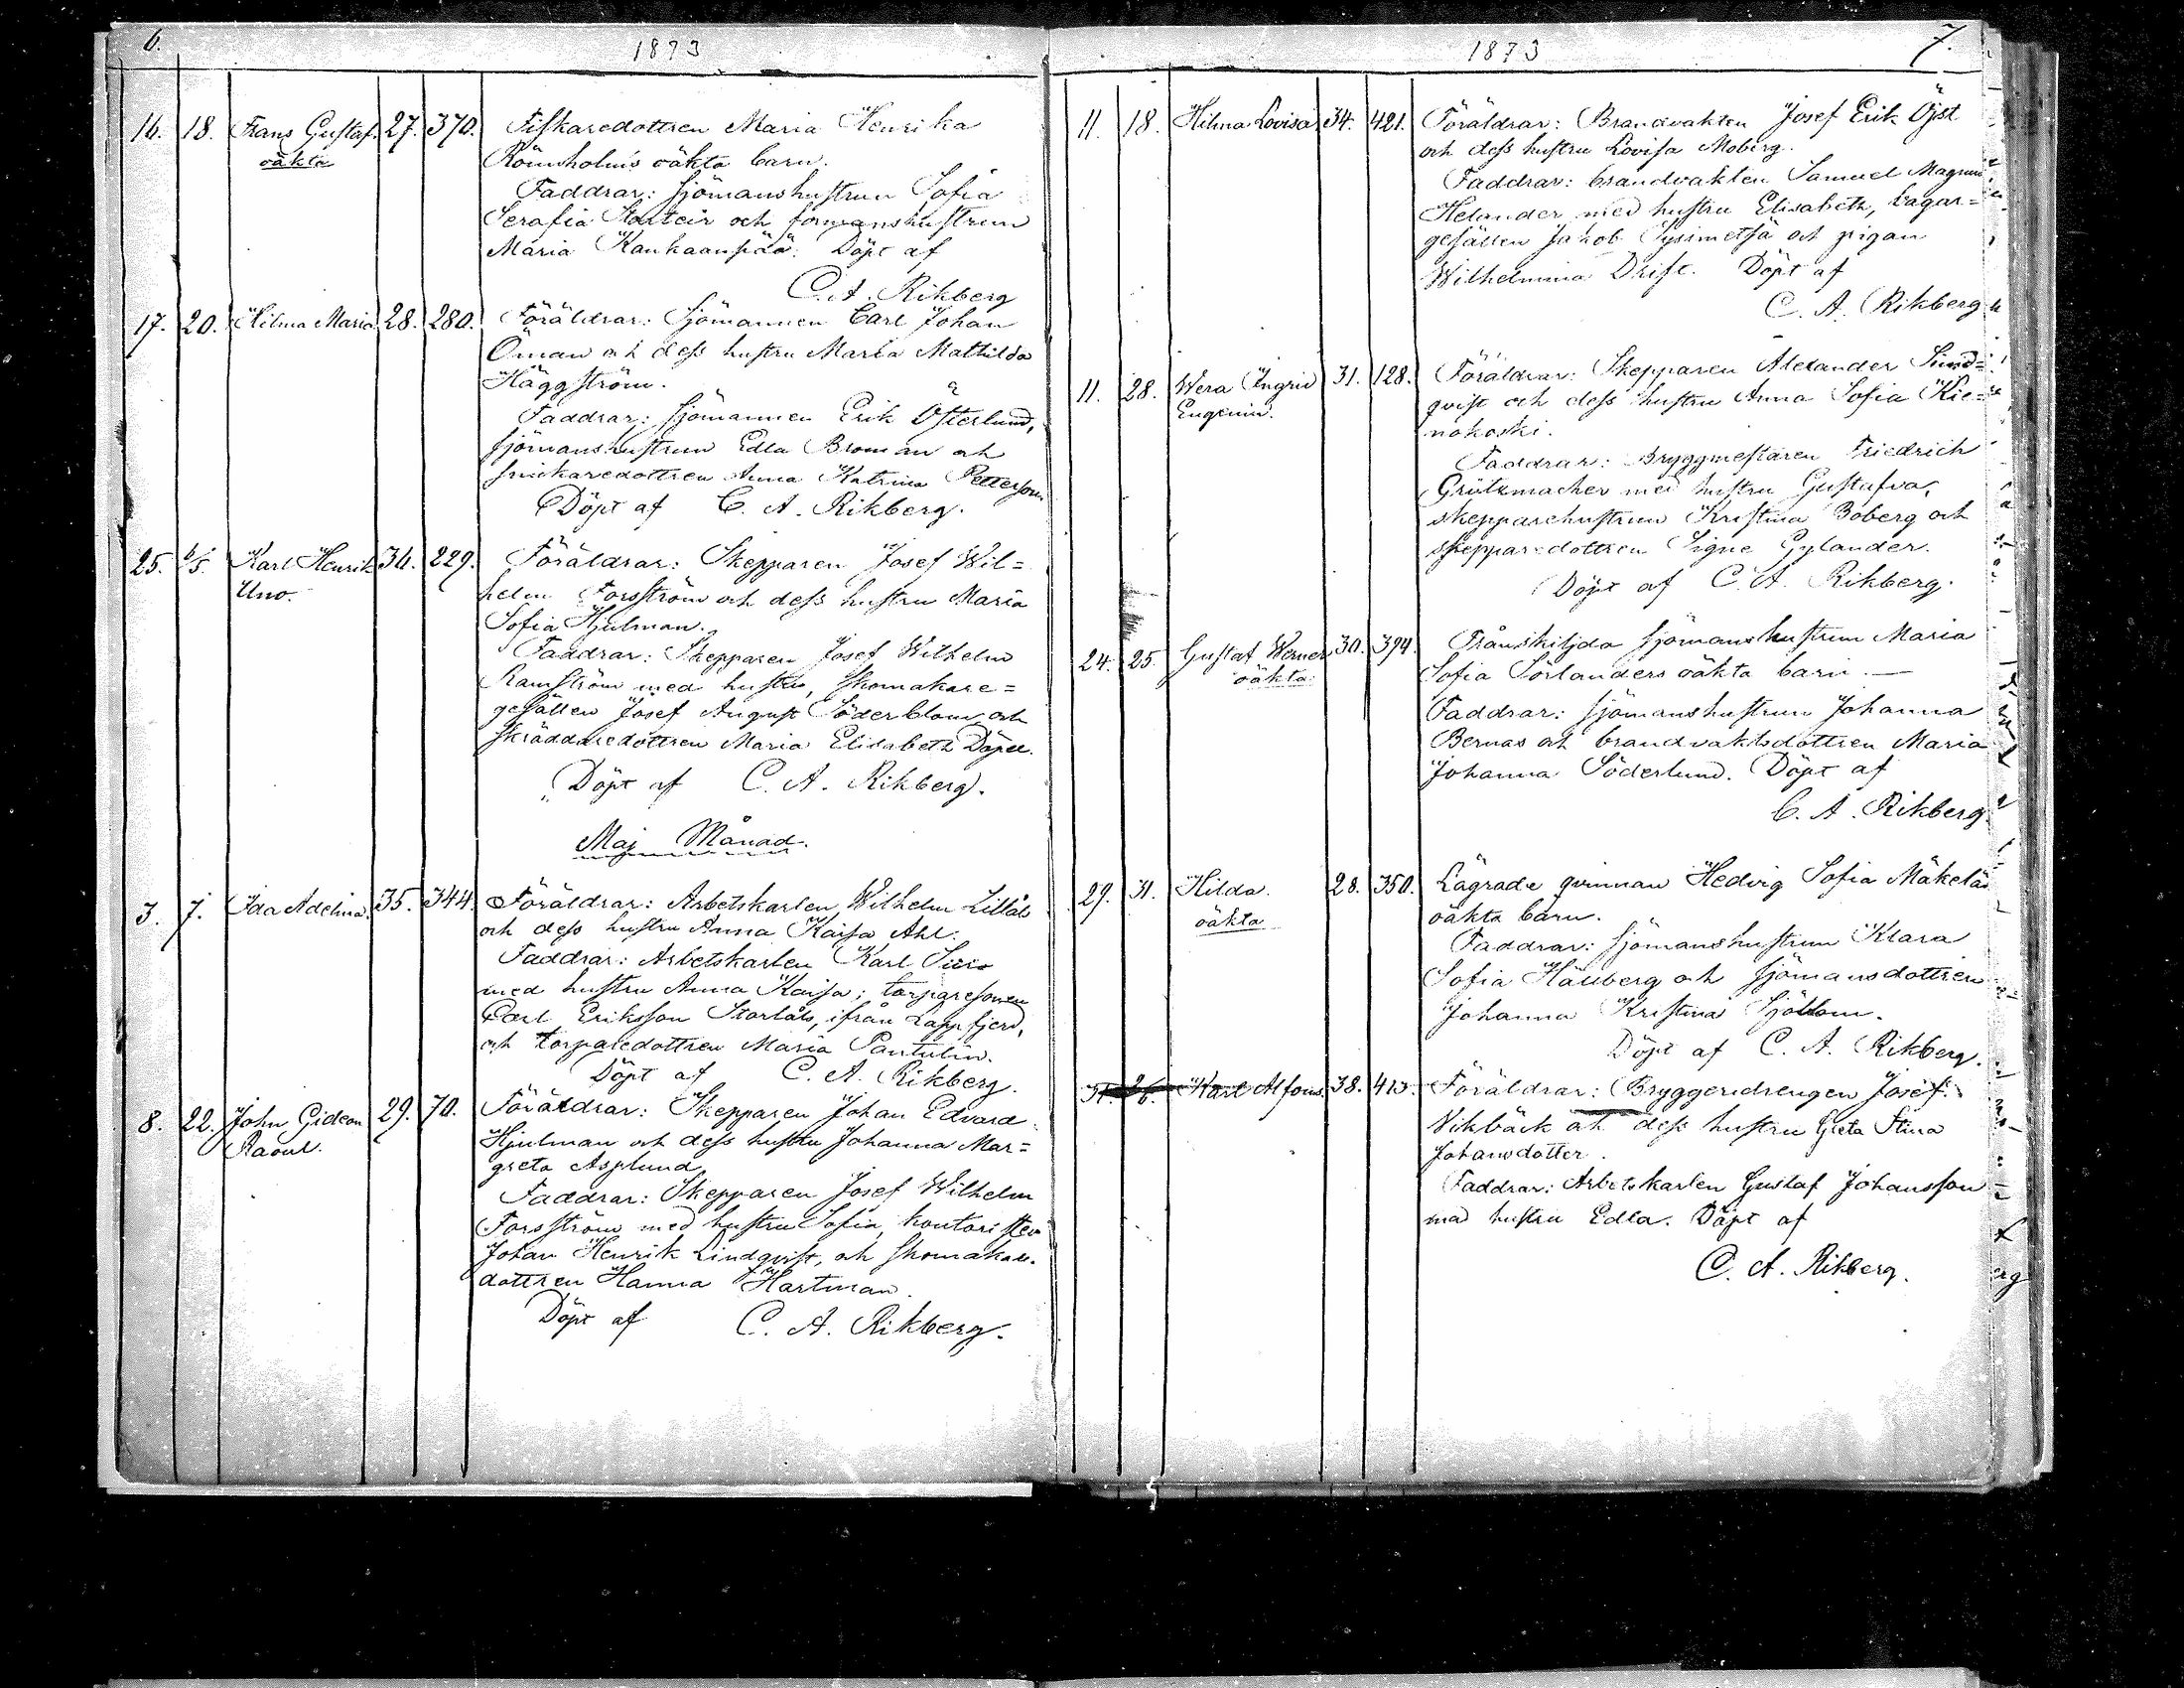 6.
1873
16. 18. Frans Gustaf. 27. 370. Fiskaredottren Maria Henrika
oäkta Römsholms oäkta barn.
Faddrar: sjömanshustrun Sofia
Serafia och formanshustrun
Maria Kankaanpää. Döpt af
C. A. Rikberg
17. 20. Hilma Maria 28. 280. Föräldrar: Sjömannen Carl Johan
Öman och dess hustru Maria Mathilda
Häggström.
Faddrar: sjömannen Erik Österlund,
sjömanshustrun Edla Broman och
snickaredottren Anna Katrina Petterson
Döpt af C. A. Rikberg.
25. 6/5. Karl Henrik 36. 229. Föräldrar: Skepparen Josef Wil=
Uno. helm Forsström och dess hustru Maria
Sofia Hjulman.
Faddrar: Skepparen Josef Wilhelm
Ramström med hustru, skomakare=
gesällen Josef August Söderblom och
skräddaredottren Maria Elisabeth
Döpt af C. A. Rikberg.
Maj Månad.
3. 7. Ida Adelina. 35. 344. Föräldrar: Arbetskarlen Wilhelm Lillåls
och dess hustru Anna Kaisa Ahl.
Faddrar: Arbetskarlen Karl
med hustru Anna Kaisa; torparesonen
Carl Eriksson Storlåls, ifrån Lappfjerd,
och torparedottren Maria Pantulin.
Döpt af C. A. Rikberg.
8. 22. John Gideon 29. 70. Föräldrar: Skepparen Johan Edvard
Raoul. Hjulman och dess hustru Johanna Mar=
greta Asplund
Faddrar: Skepparen Josef Wilhelm
Forsström med hustru Sofia, kontoristen
Johan Henrik Lindqvist, och skomakare.
dottren Hanna Hartman.
Döpt af C. A. Rikberg.
1873
7.
11. 18. Hilma Lovisa 34. 421. Föräldrar: Brandvakten Josef Erik Öjst
och dess hustru Lovisa Moberg.
Faddrar: brandvakten Samuel Magnus
Helander med hustru Elisabeth, bagar=
gesällen Jakob Sysimetsä och pigan
Wilhelmina Drift. Döpt af
C. A. Rikberg
11. 28. Wera Ingrid 31. 128. Föräldrar: Skepparen Alexander Sund=
Eugenia. qvist och dess hustru Anna Sofia Kie=
nokoski.
Faddrar: Bryggmestaren Friedrich
Grützmacher med hustru Gustafva,
skepparehustrun Kristina Boberg och
skepparedottren Signe Gylander.
Döpt af C. A. Rikberg.
24. 25. Gustaf Werner 30. 394. Frånskiljda sjömanshustrun Maria
oäkta. Sofia Sörlanders oäkta barn. —
Faddrar: sjömanshustrun Johanna
Bernas och brandvaktsdottren Maria
Johanna Söderlund. Döpt af
C. A. Rikberg.
29. 31. Hilda. 28. 350. Lägrade qvinnan Hedvig Sofia Mäkeläs
oäkta oäkta barn.
Faddrar: sjömanshustrun Klara
Sofia Hällberg och sjömansdottren
Johanna Kristina Sjöblom.
Döpt af C. A. Rikberg.
31. 26. Karl Alfons. 38. 413. Föräldrar: Bryggeridrengen Josef
Vikbäck och dess hustru Greta Stina
Johansdotter.
Faddrar: Arbetskarlen Gustaf Johansson
med hustru Edla. Döpt af
C. A. Rikberg.